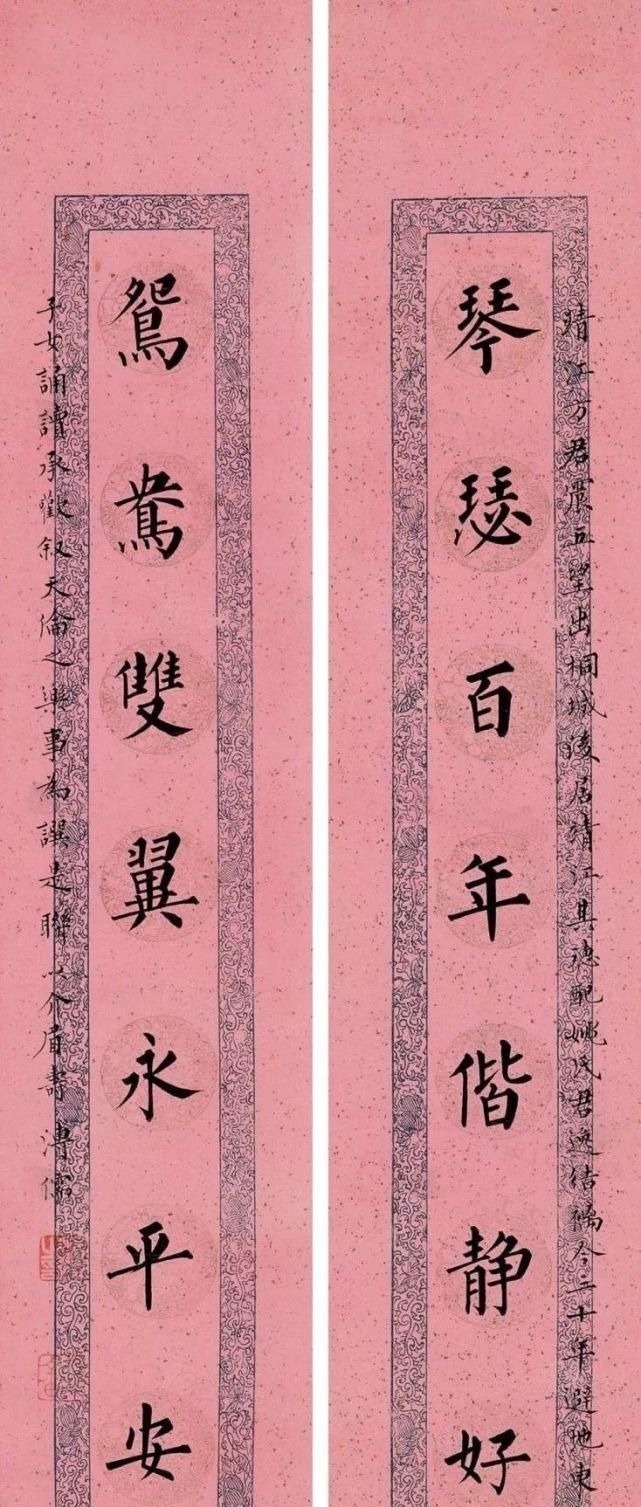 靖江方君震五望出桐城後居靖江其德配姚氏君逸结褵今二十年避地東
琴瑟百年偕静好
鴛鴦雙翼永平安
子女誦讀承歡叙天倫之樂事為譔是聯以介眉壽 溥儒